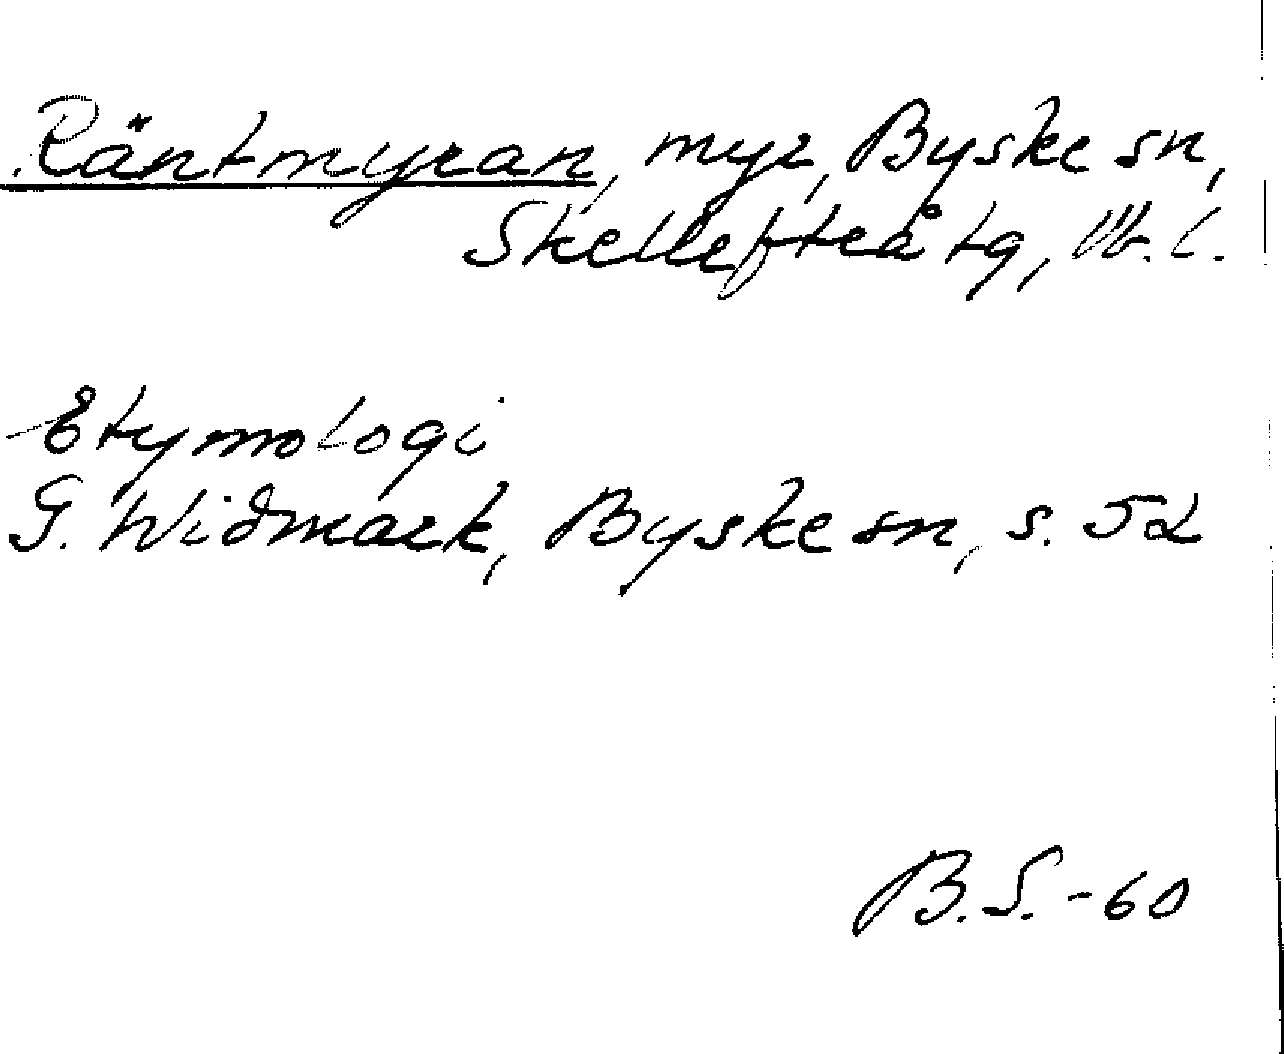 Räntmyran, myr, Byske sn,
Skellefteå tg, Vb. l.
Etymologi
G. Widmark, Byske sn, s. 52
B.S. -60